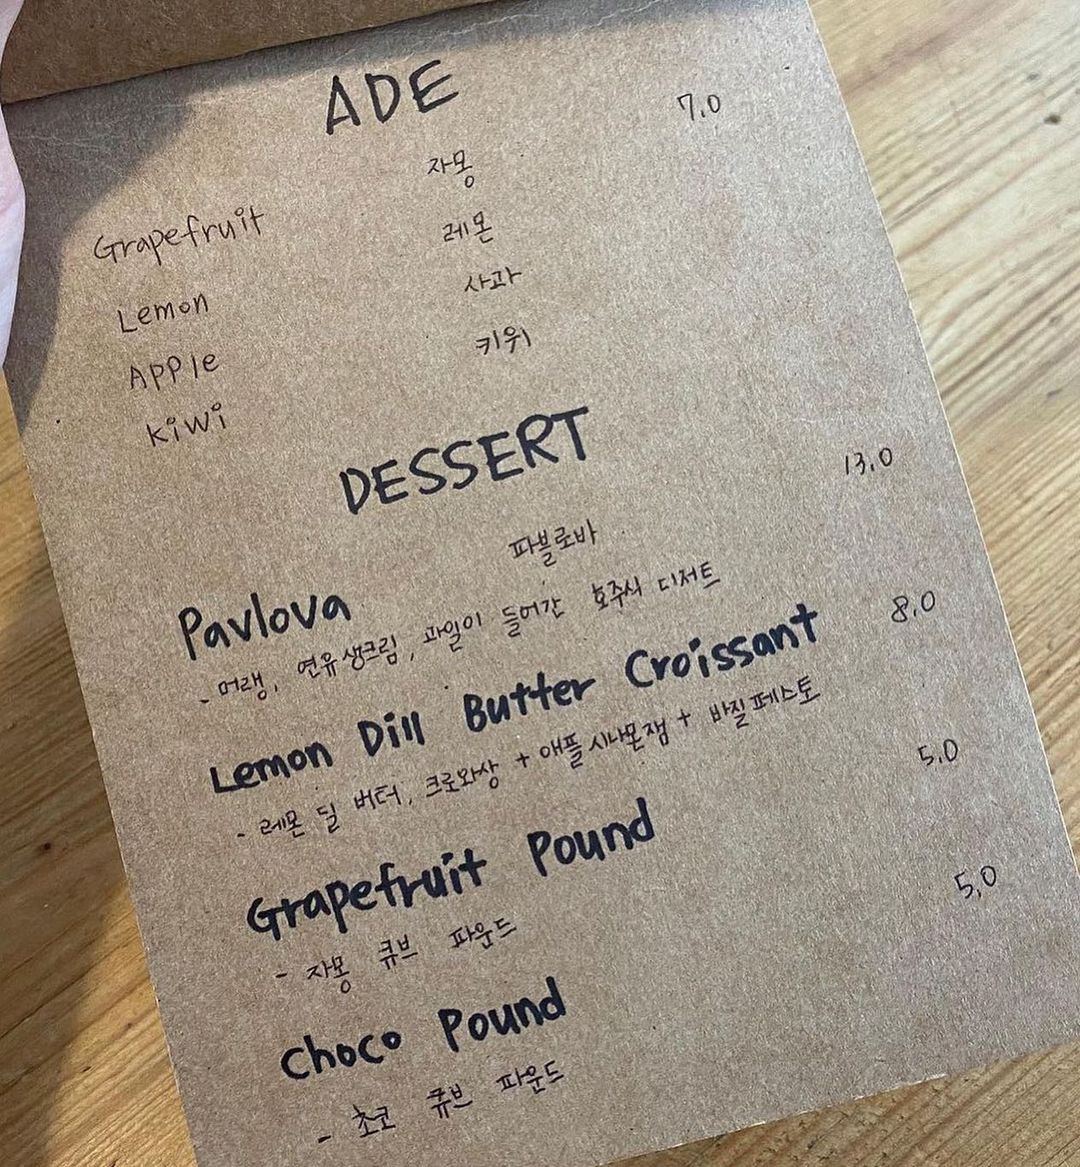 ADE 7.0
Grapefruit 자몽
Lemon 레몬
Apple 사과
Kiwi 키위
DESSERT
Pavlova 파블로바 13.0
- 머랭, 연유생크림, 과일이 들어간 호주식 디저트
Lemon Dill Butter Croissant 8.0
- 레몬 딜 버터, 크로와상 + 애플시나몬잼 + 바질페스토
Grapefruit Pound 5.0
- 자몽 큐브 파운드
Choco Pound 5.0
- 초코 큐브 파운드